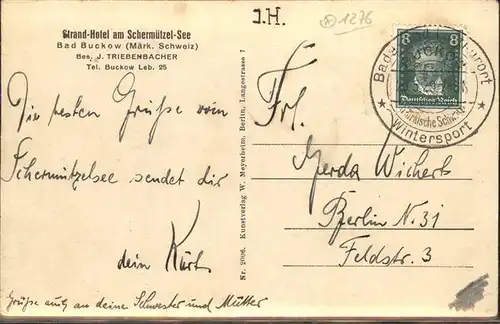 Strand-Hotel am Schermützel-See
Bad Buckow (Märk. Schweiz)
Bes. J. TRIEBENBACHER
Tel. Buckow Leb. 25
Die besten Grüße vom
Schermützelsee sendet dir
dein Kurt
Grüße auch an deine Schwester und Mutter
Nr. 2906. Kunstverlag W. Meyerheim, Berlin, Langestrasse 7
J.H.
A 1276
8 8
Deutsches Reich
Märkische Schweiz
★ Wintersport ★
Frl.
Gerda Wichert
Berlin N. 31
Feldstr. 3